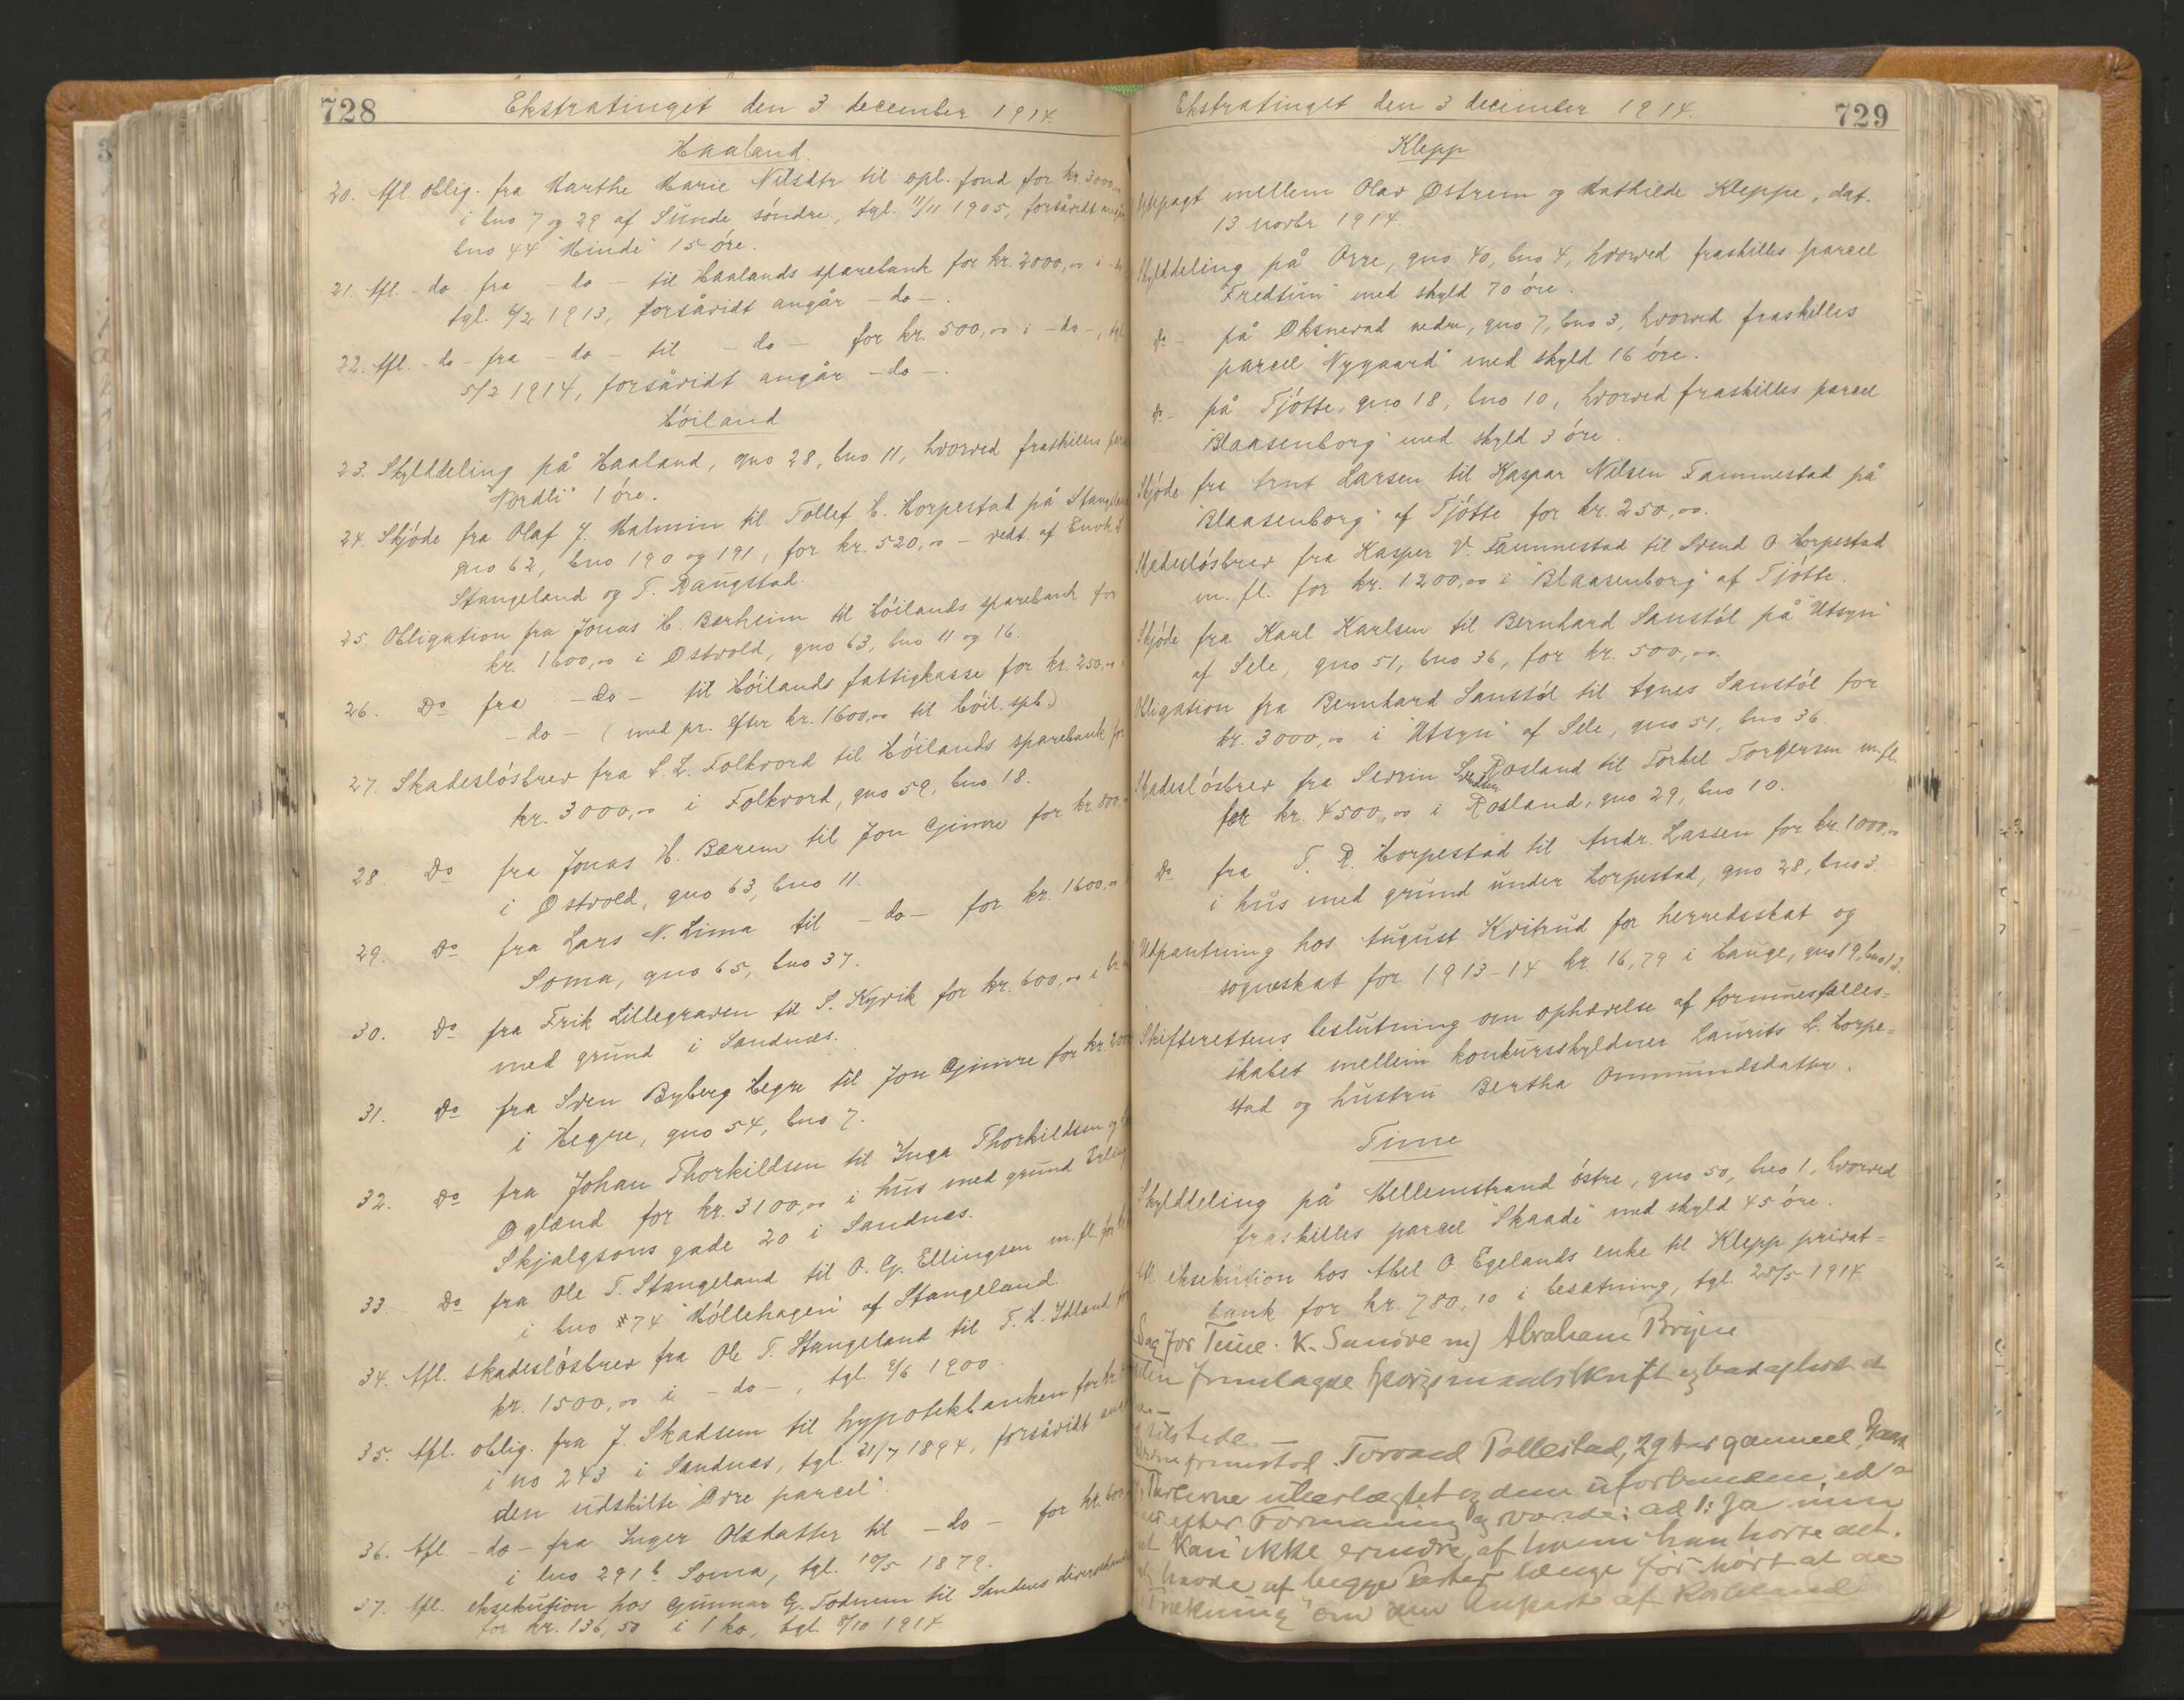 728
Ekstratinget den 3 december 1914.
Haaland.
20. Afl. oblig. fra Marthe Marie Nilsdtr til opl. fond for kr. 3000,00
i bno 7 og 29 af Sunde søndre, tgl. 11/11 1905, forsåvidt angår
bno 44 "Minde" 15 öre.
21. Afl. -do- fra -do- til Haalands sparebank for kr. 2000,00 i -do-
tgl. 6/2 1913, forsåvidt angår -do-.
22. Afl. -do- fra -do- til -do- for kr. 500,00 i -do-, tgl.
5/2 1914, forsåvidt angår -do-.
Höiland
23. Skylddeling på Haaland, gno 28, bno 11, hvorved fraskilles
"Nordli" 1 öre.
24. Skjöde fra Olaf J. Malmin til Tollef H. Horpestad på Stangeland
gno 62, bno 190 og 191, for kr. 520,00 - vedt. af Enok
Stangeland og T. Raugstad.
25. Obligation fra Jonas H. Bærheim til Höilands sparebank for
kr. 1600,00 i Østvold, gno 63, bno 11 og 16.
26. Do fra -do- til Höilands fattigkasse for kr. 250,00
-do- (med pr. efter kr. 1600,00 til Höil. spb.)
27. Skadeslösbrev fra S. L. Folkvord til Höilands sparebank for
kr. 3000,00 i Folkvord, gno 59, bno 18.
28. Do fra Jonas H. Bærem til Jon Gjimre for kr 800,
i Østvold, gno 63, bno 11.
29. Do fra Lars N. Lima til -do- for kr. 1600,00
Soma, gno 65, bno 37.
30. Do fra Erik Lillegraven til S. Kyvik for kr. 600,00 i
med grund i Sandnæs.
31. Do fra Sven Byberg Hegre til Jon Gjimre for kr.
i Hegre, gno 54, bno 7.
32. Do fra Johan Thorkildsen til Inga Thorkildsen og
Øglænd for kr. 3100,00 i hus med grund Erling
Skjalgsons gade 20 i Sandnæs.
33. Do fra Ole T. Stangeland til O. G. Ellingsen m. fl. for
i bno 74 "Möllehagen" af Stangeland.
34. Afl. skadeslösbrev fra Ole T. Stangeland til T. H. Idland
kr. 1500,00 i -do-, tgl. 6/6 1900.
35. Afl. oblig. fra J. Skadsem til hypotekbanken for kr.
i no 243 i Sandnæs, tgl. 21/7 1894, forsåvidt
den udskilte "Övre parcel".
36. Afl. -do- fra Inger Olsdatter til -do- for kr. 600
i bno 291 b Soma, tgl. 10/5 1879.
37. Afl. eksekution hos Gunnar G. Todnem til Sandnes
for kr. 136,50 i 1 ko, tgl. 8/10 1914.
729
Ekstratinget den 3 december 1914.
Klepp
mellem Olav Østrem og Mathilde Kleppe, dat.
13 novbr 1914.
Skylddeling på Orre, gno 40, bno 4, hvorved fraskilles parcel
"Fredtun" med skyld 70 öre.
do - på Øksnevad nedre, gno 7, bno 3, hvorved fraskilles
parcel "Nygaard" med skyld 16 öre.
do - på Tjötte, gno 18, bno 10, hvorved fraskilles parcel
"Blaasenborg" med skyld 3 öre.
Skjöde fra Arnt Larsen til Kaspar Nilsen Fammestad på
"Blaasenborg" af Tjötte for kr. 250,00.
Skadeslösbrev fra Kasper N. Fammestad til Svend O Horpestad
m. fl. for kr. 1200,00 i "Blaasenborg" af Tjötte.
Skjöde fra Karl Karlsen til Bernhard Sanstöl på "Utsyn"
af Sele, gno 51, bno 36, for kr. 500,00.
Obligation fra Bernhard Sanstöl til Agnes Sanstöl for
kr. 3000,00 i "Utsyn" af Sele, gno 51, bno 36.
Skadeslösbrev fra Sevrin Rosland til Torkel Torgersen m. fl.
for kr. 4500,00 i Rosland, gno 29, bno 10.
Do fra T. R. Horpestad til Andr. Lassen for kr. 1000,00
i hus med grund under Horpestad, gno 28, bno 3
Utpantning hos August Kvitrud for herredsskat og
sogneskat for 1913-14 kr. 16,79 i Hauge, gno 19, bno 13.
Skifterettens beslutning om ophævelse af formuesfælles=
skabet mellem konkursskyldner Laurits L. Horpe=
stad og hustru Bertha Ommundsdatter.
Time
Skylddeling på Mellemstrand östre, gno 50, bno 1, hvorved
fraskilles parcel "Skaade" med skyld 45 öre.
Afl. eksekution hos Abel O. Egelands enke til Klepp privat=
bank for kr. 780,10 i besætning, tgl. 28/5 1914
Sag for Time: K. Sandve m) Abraham Bryne
fremlagde Spörgsmaalsskrift og bad aflært et
tilstede. -
fremstod Torvald Tollestad, 29 Aar gammel, Gaard
Parterne ubeslægtet og dem uforbunden, ed=
efter Formaning og svarede: ad 1: Ja min
kan ikke erindre, af hvem han hörte det.
havde af begge Parter længe för hört at de
Trækning" om den Anpart af Rosseland